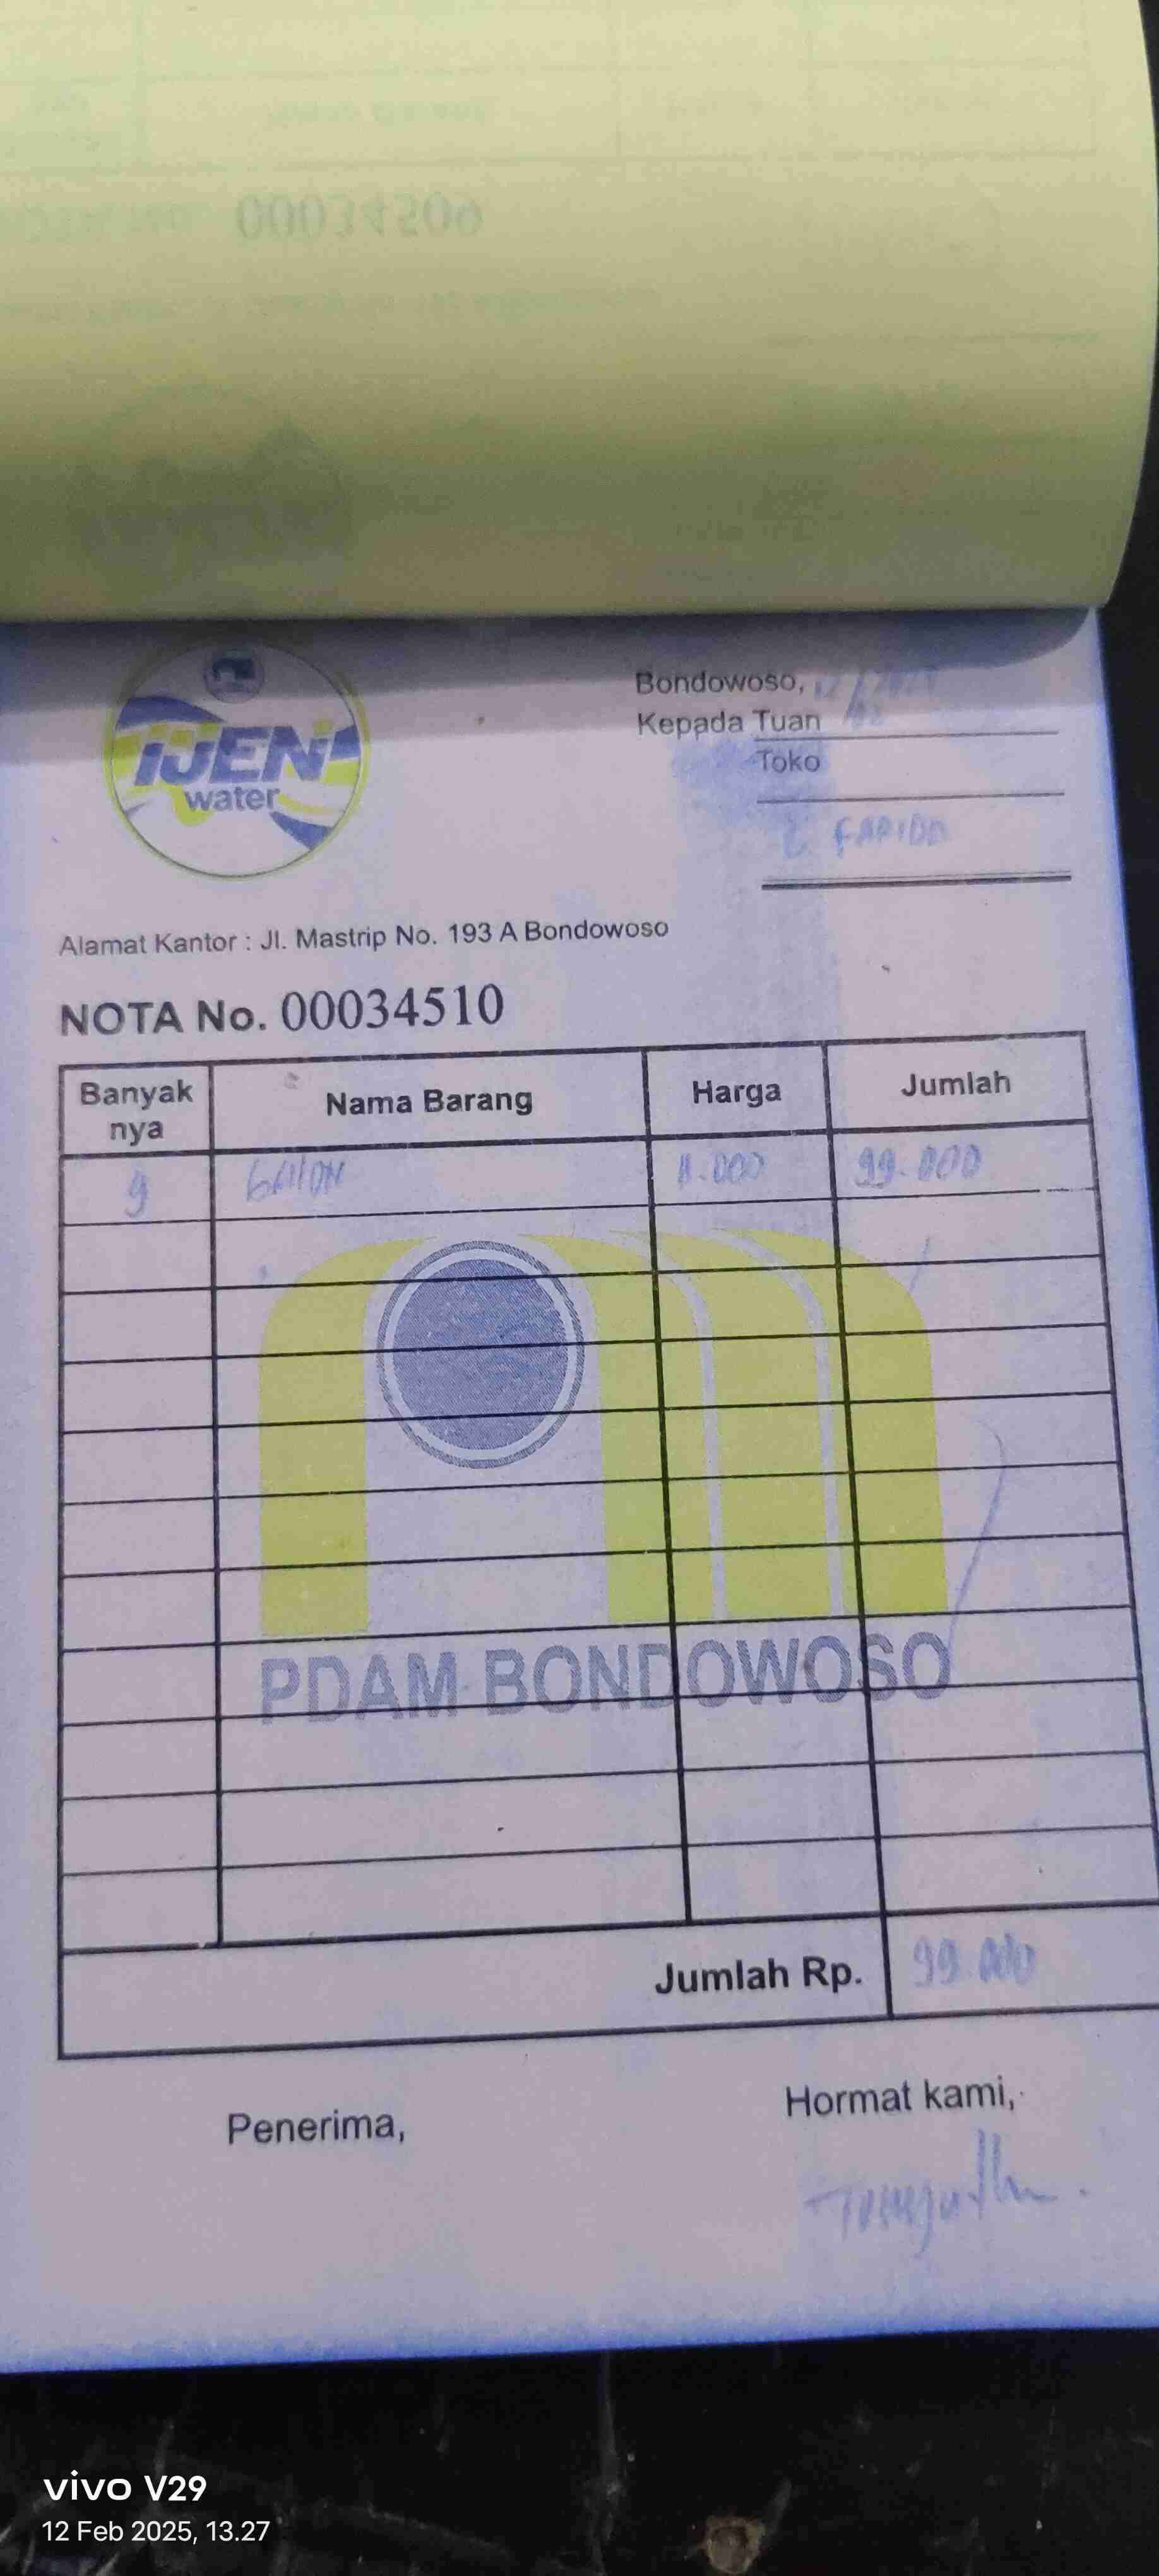 00034509
IJEN
water
Bondowoso, 12/2025
/02
Kepada Tuan
Toko
FARIDA
Alamat Kantor : Jl. Mastrip No. 193 A Bondowoso
NOTA No. 00034510
Banyak nya Nama Barang Harga Jumlah
9 GALLON 11.000 99.000
PDAM BONDOWOSO
Jumlah Rp. 99.000
Penerima,
Hormat kami,
vivo V29
12 Feb 2025, 13.27